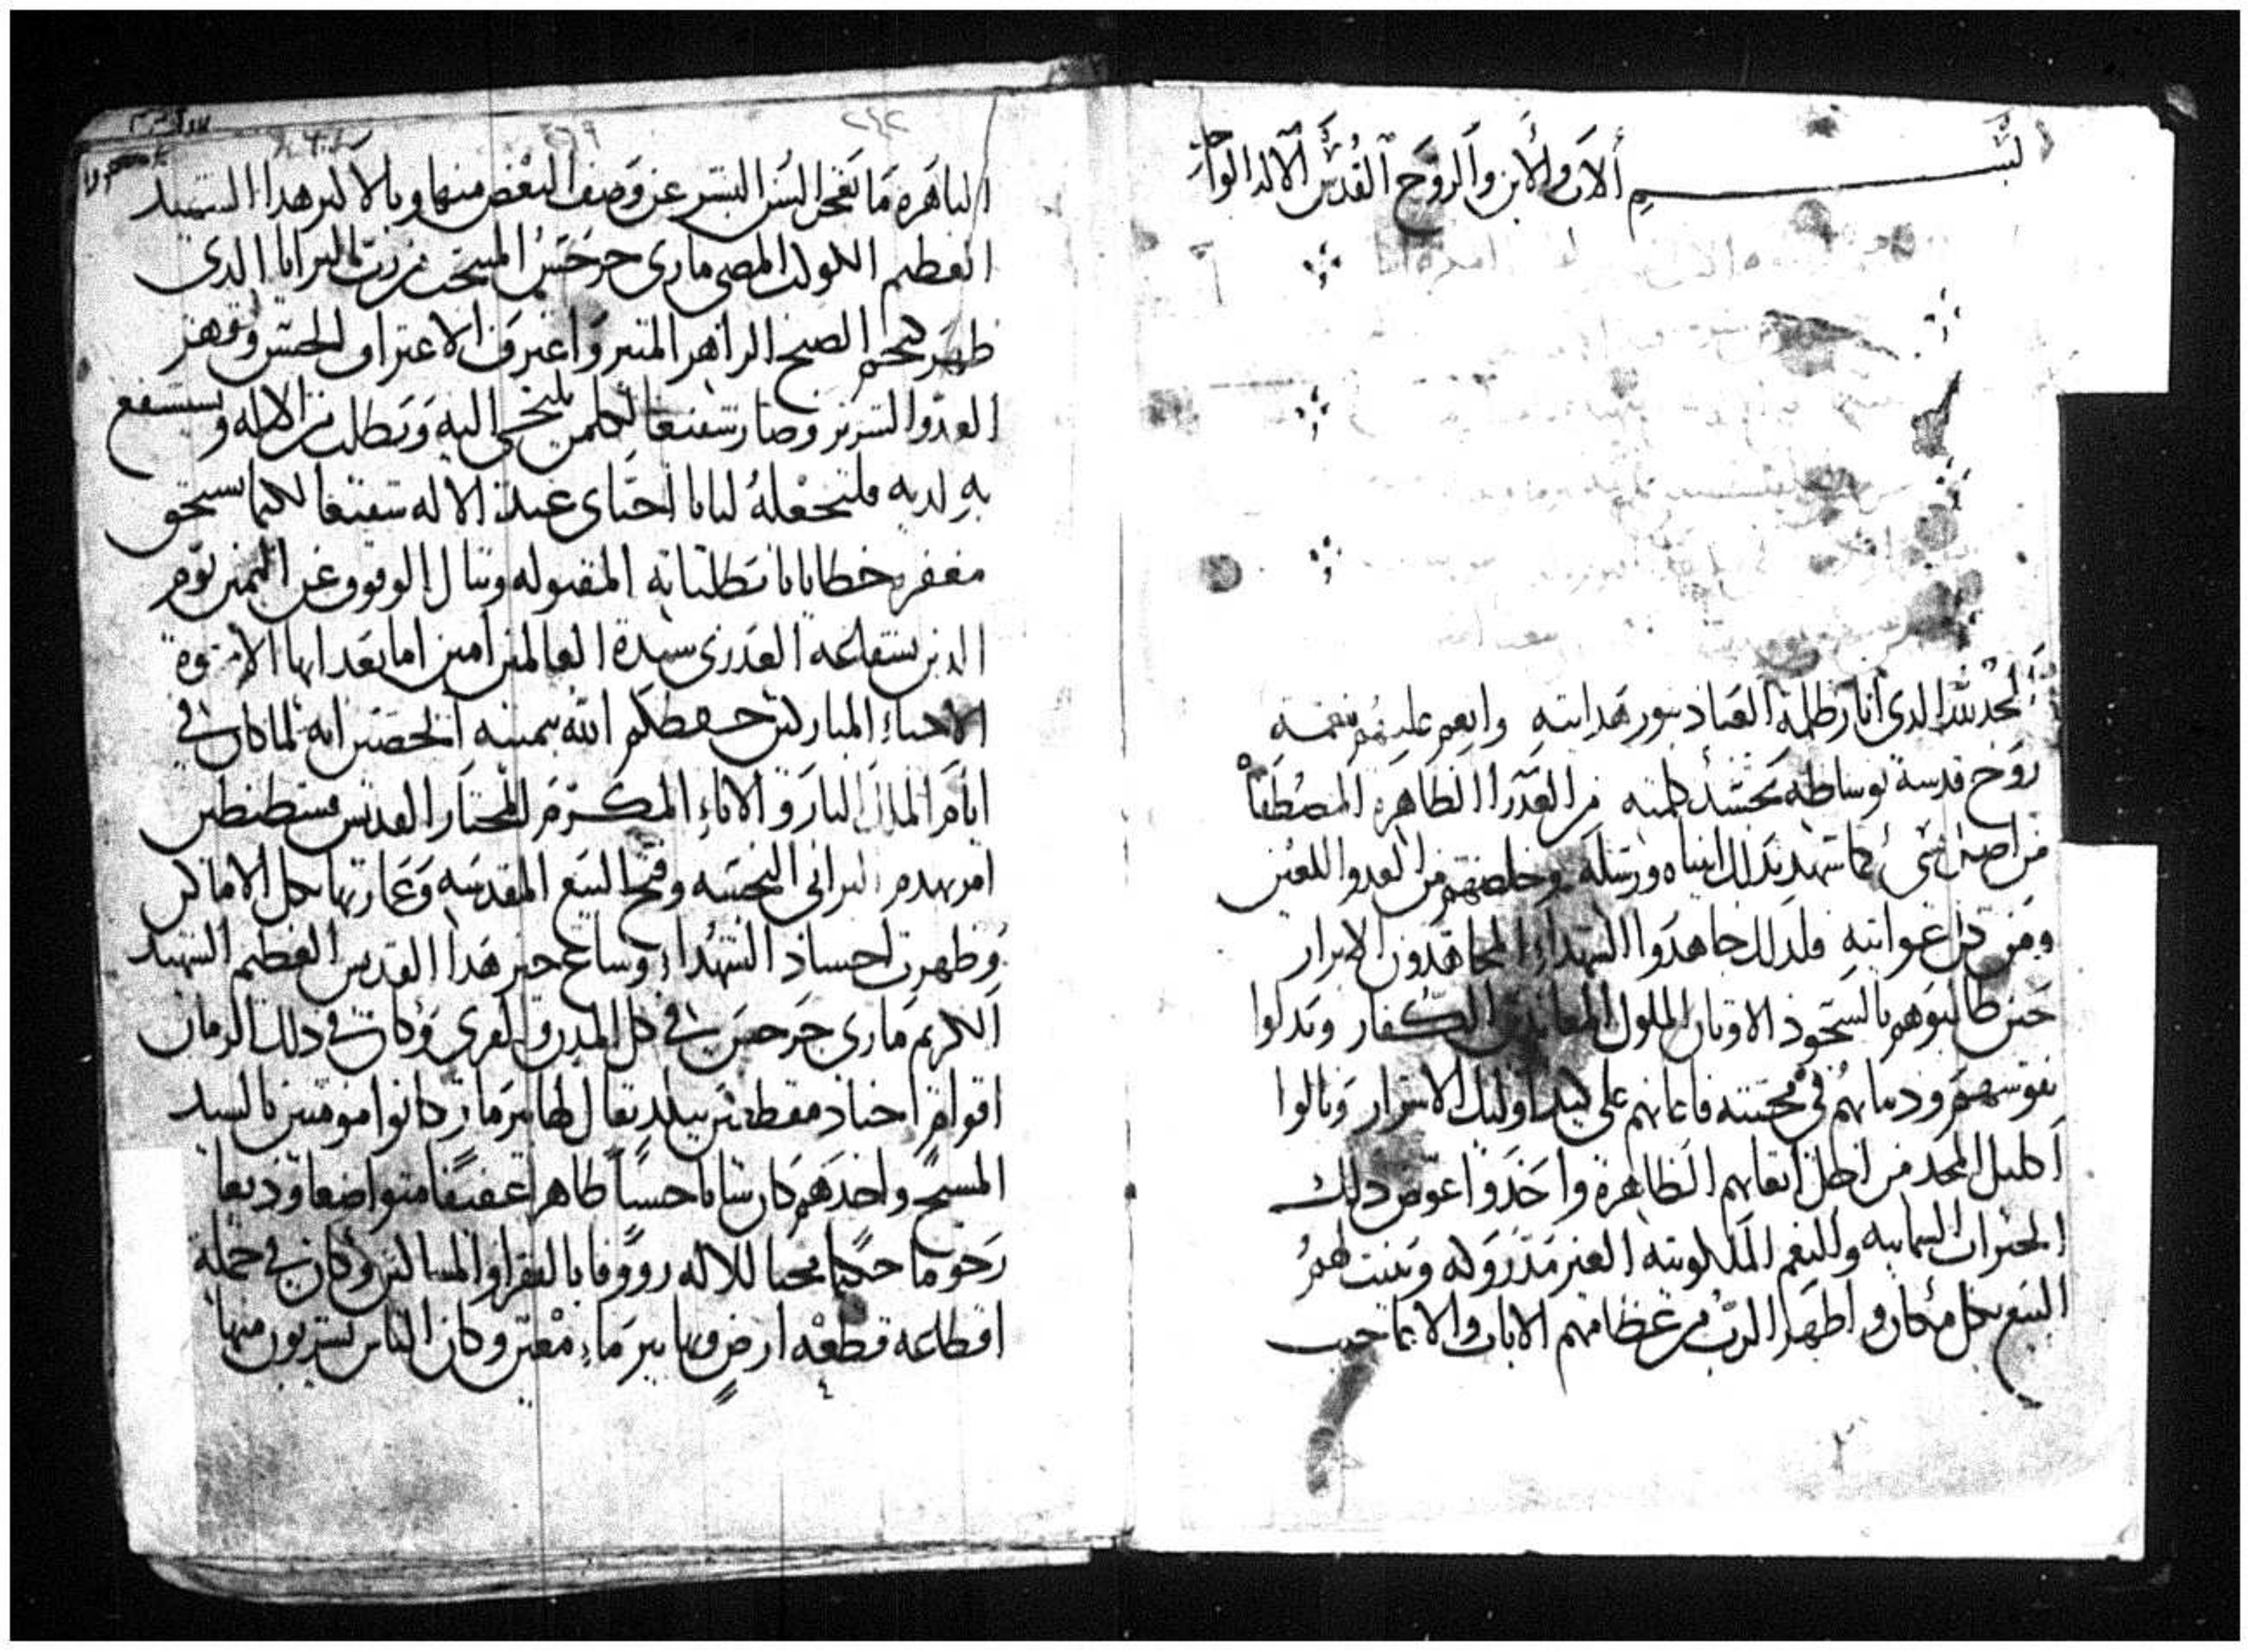 بسم ألاب والأبن وألروح ألقدس ألاله الواحد
ألحمد لله الدى انار ظلمة العباد بنور هدايته وانعم عليهم بنعمة
روح قدسة بوساطة تجسد كلمته من العدرا الطاهرة المصطفاه
من اصل كما شهد بدلك انبياه ورسله وخلصهم من العدوا اللعين
ومن غوايته فلدلك جاهدوا الشهداء المجاهدون الابرار
حين طالبوهم بالسجود الاوتان الملوك المعاندين الكفار وبدلوا
نفوسهم ودماهم في محبته فاعانهم على كيد اوليك الاشرار ونالوا
اكليل المجد من اجل اتعابهم الظاهرة واخدوا عوض دلك
الخيرات السمايية والنعم الملكوتية الغير مدروكه وبنيت لهم
البيع بكل مكان واظهر الرب من عظامهم الايات والاعاجيب
الباهرة ما تعجز السن البشر عن وصف البعض منها وبالاكثر هدا الشهيد
العظيم الكوكب المضى مارى جرجس المنتخب من رب البرايا الدى
ظهر كنجم الصبح الزاهر المنير واعترف الاعتراف الحسن وقهر
العدوا الشرير وصار شفيعا لكلمن يلتجى اليه ويطلب من الاله ويستشفع
به لديه فلنجعله لنا يا احباى عند الاله شفيعا لكيما نستحق
مغفرة خطايانا بطلباته المقبوله وننال الوقوف عن اليمين يوم
الدين بشفاعة العدرى سيدة العالمين امين اما بعد ايها الاخوة
الاحباء المباركين حفظكم الله بيمينه الحصينه انه لما كان في
ايام الملك البار والاناء المكرم المختار القديس قسطنطين
امر بهدم البرابى النجسه وفتح البيع المقدسه وعمارتها بكل الاماكن
وظهرت اجساد الشهداء وشاع خبر هدا القديس العظيم الشهيد
الكريم مارى جرجس في كل المدن والقرى وكان في دلك الزمان
اقوام اجناد مقطعين ببلد يقال لها بيرما وكانوا مومنين بالسيد
المسيح واحدهم كان شابا حسنا طاهرا عفيفا متواضعا وديعا
رحوما حكيما محبا للاله رووفا بالفقرا والمساكين وكان في جملة
اقطاعه قطعة ارض وبها بير ماء معين وكان الناس يشربون منها